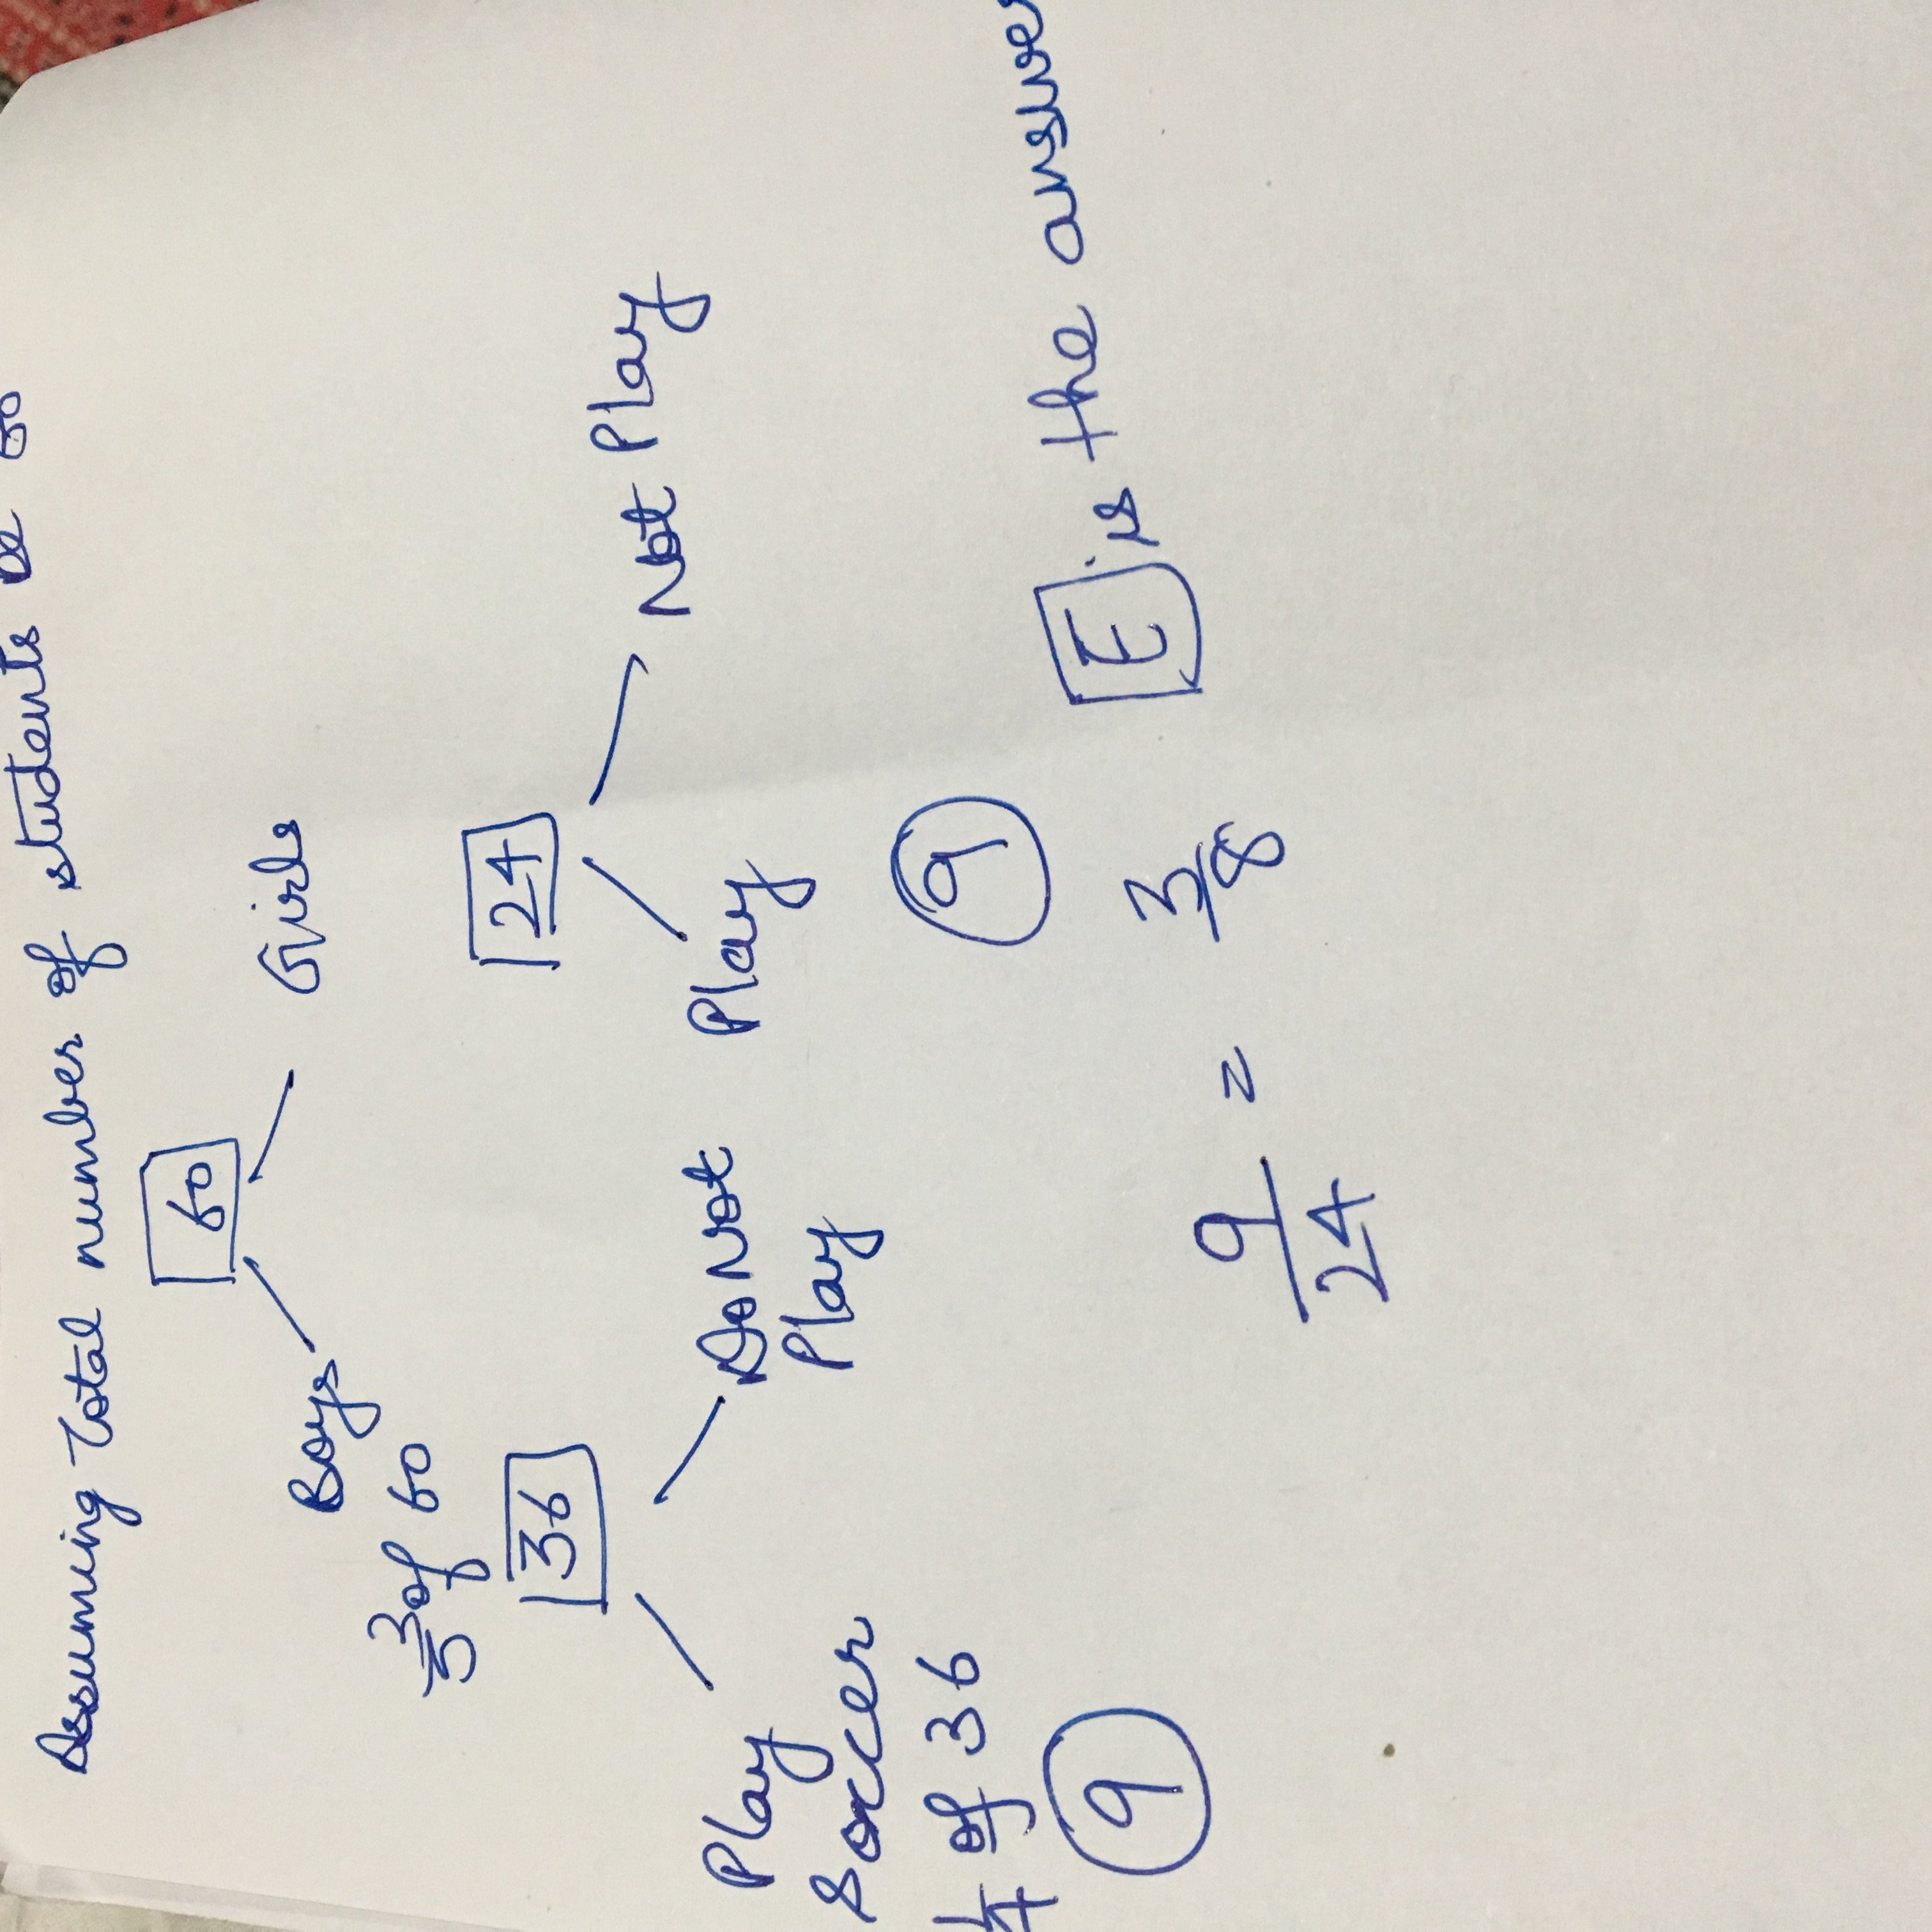 Assuming Total number of students be 60
60
Boys Girls
3/5 of 60
36 24
Play Soccer Do Not Play Play Not Play
1/4 of 36
9 9
9/24 = 3/8 E is the answer